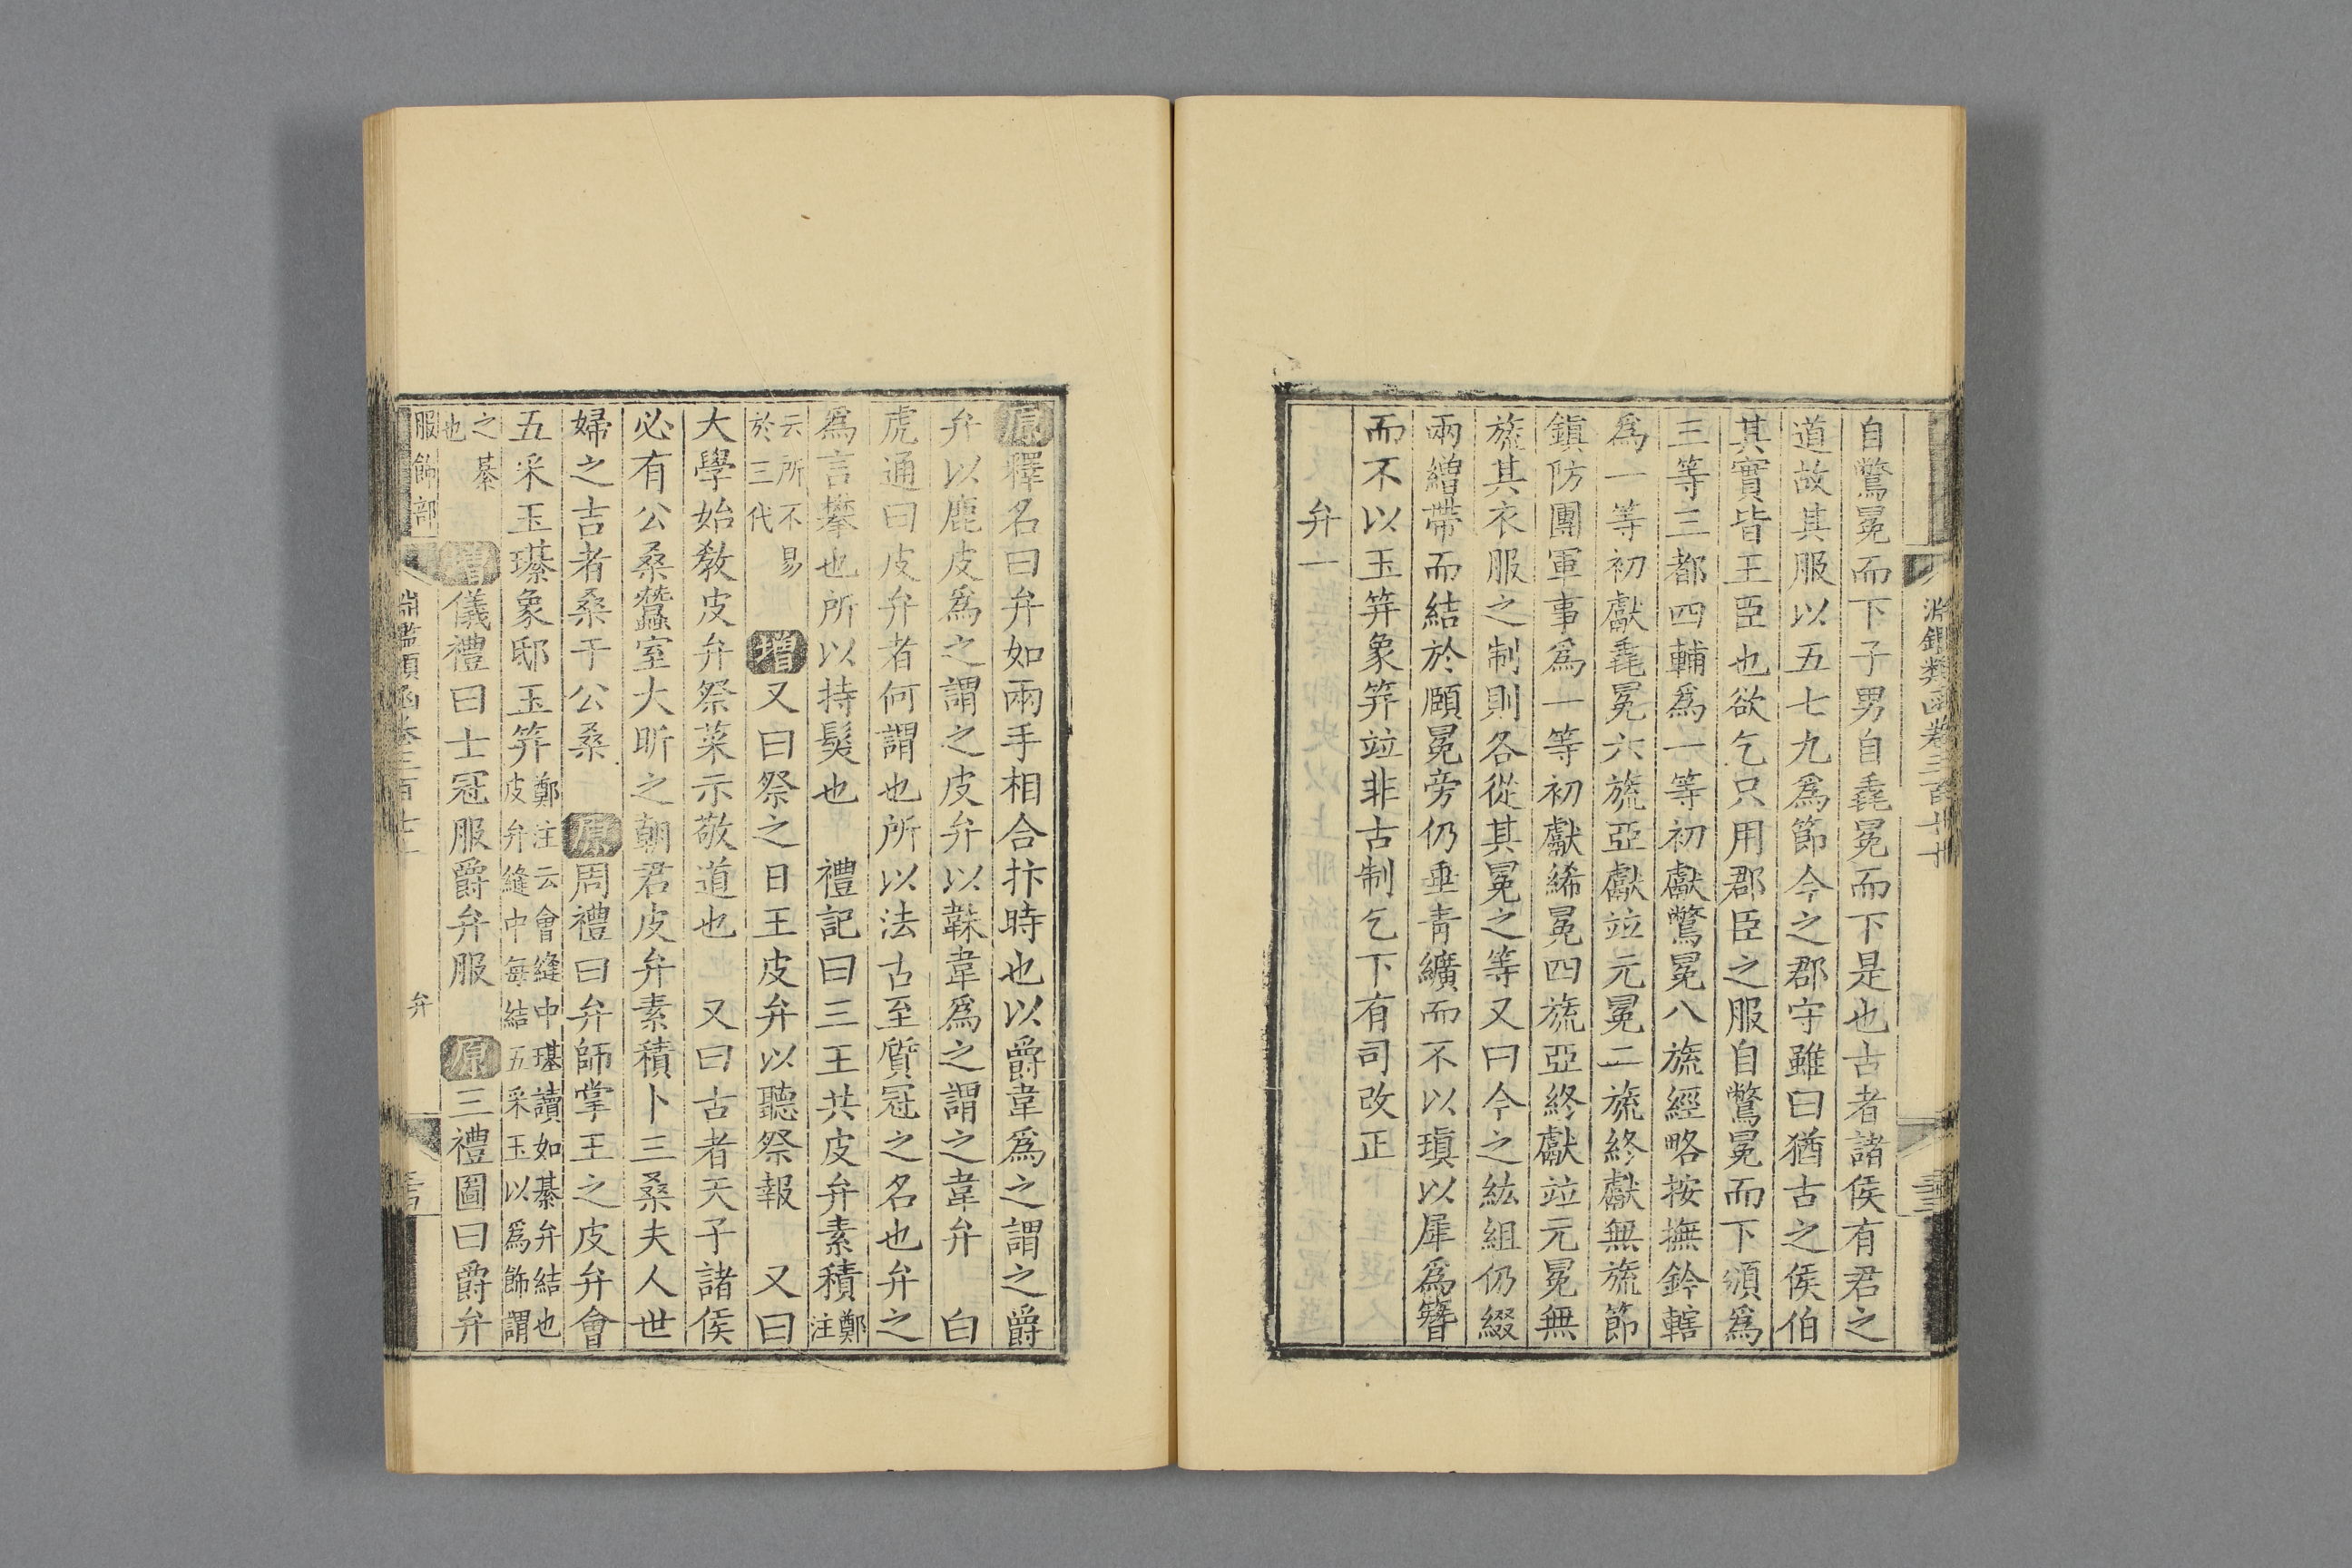 自鷩冕而下子男自毳冕而下是也古者諸侯有君之
道故其服以五七九爲節今之郡守雖曰猶古之侯伯
其實皆王臣也欲乞只用郡臣之服自鷩冕而下頒爲
三等三都四輔爲一等初獻鷩冕八旒經略按撫鈐轄
爲一等初獻毳冕六旒亞獻竝元冕二旒終獻無旒節
鎮防團軍事爲一等初獻絺冕四旒亞終獻竝元冕無
旒其衣服之制則各從其冕之等又曰今之紘組仍綴
兩繒帶而結於頤冕旁仍垂青纊而不以瑱以犀爲簪
而不以玉笄象笄竝非古制乞下有司改正
弁一
原釋名曰弁如兩手相合抃時也以爵韋爲之謂之爵
弁以鹿皮爲之謂之皮弁以韎韋爲之謂之韋弁　白
虎通曰皮弁者何謂也所以法古至質冠之名也弁之
爲言攀也所以持髮也　禮記曰三王共皮弁素積鄭注
云所不易於三代　增又曰祭之日王皮弁以聽祭報　又曰
大學始敎皮弁祭菜示敬道也　又曰古者天子諸侯
必有公桑蠶室大昕之朝君皮弁素積卜三桑夫人世
婦之吉者桑于公桑　原周禮曰弁師掌王之皮弁會
五采玉璂象邸玉笄鄭注云會縫中璂讀如綦弁結也皮弁縫中每結五采玉以爲飾謂
之綦也　增儀禮曰士冠服爵弁服　原三禮圖曰爵弁
服飾部　淵鑑類函卷三百七十　弁